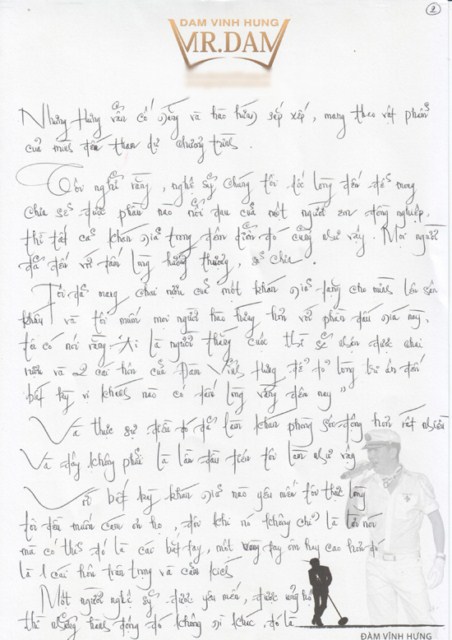 2
ĐÀM VĨNH HƯNG
MR.DAM
Nhưng Hưng vẫn cố gắng và hào hứng sắp xếp, mang theo vật phẩm
của mình đến tham dự chương trình.
Tôi nghĩ rằng, nghệ sỹ chúng tôi, tốc lòng đến để mong
chia sẻ được phần nào nỗi đau của một người em đồng nghiệp,
thì tất cả khán giả trong đêm diễn đó cũng như vậy. Mọi người
đã đến với tấm lòng hướng thượng, sẻ chia.
Tôi đã mang chai nước của một khán giả tặng cho mình lên sân
khấu và tôi muốn mọi người hào hứng hơn với phần đấu giá này
tôi có nói rằng "Ai là người thắng cuộc thì sẽ nhận được chai
nước và 2 cái hôn của Đàm Vĩnh Hưng để tỏ lòng tri ân đến
bất kỳ vị khách nào có tấm lòng vàng đêm nay"
Và thực sự điều đó đã làm khán phòng sôi động hơn rất nhiều
Và đây không phải là lần đầu tiên tôi làm như vậy
Với bất kỳ khán giả nào yêu mến tôi thật lòng
tôi đều muốn cảm ơn họ, đôi khi nó không chỉ là lời nói
mà có thể đó là các bắt tay, một vòng tay ôm hay cao hơn đó
là 1 cái hôn trân trọng và cảm kích
Một người nghệ sỹ được yêu mến, được ủng hộ
thì những hành động đó không gì khác, đó là
ĐÀM VĨNH HƯNG